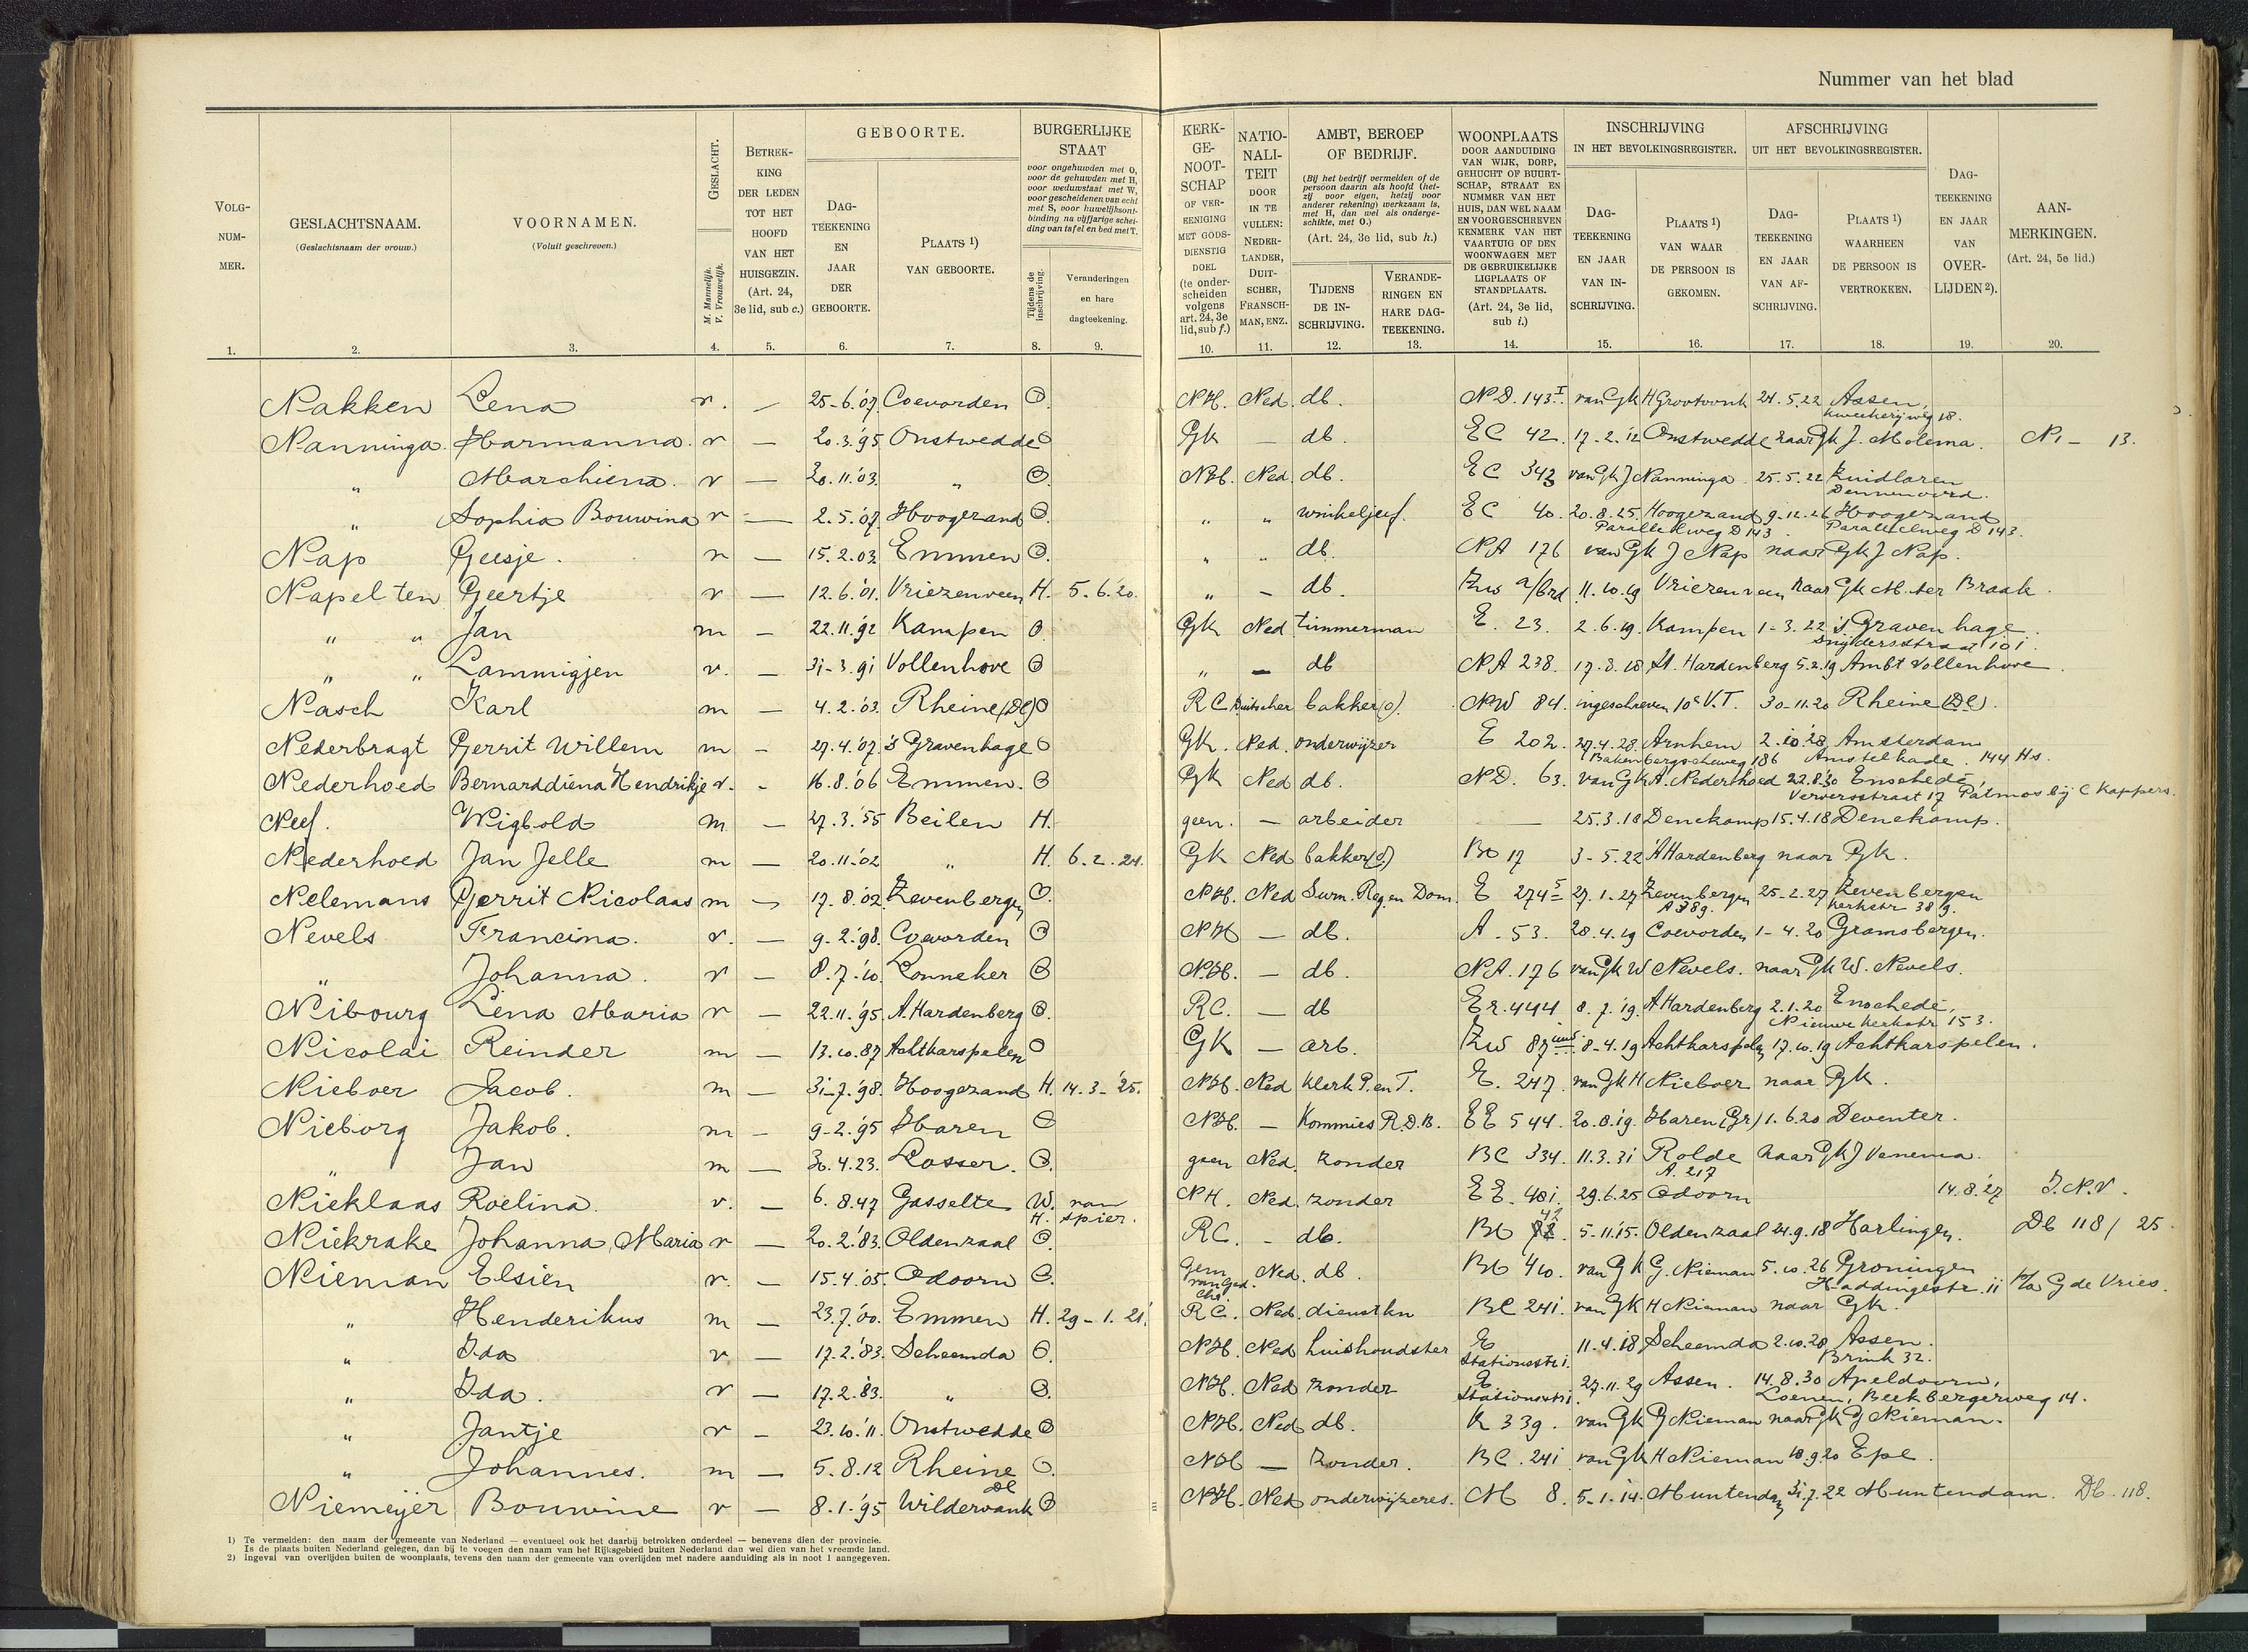 Nummer van het blad
VOLG-NUM-MER.
GESLACHTSNAAM.
(Geslachtsnaam der vrouw.)
VOORNAMEN.
(Voluit geschreven.)
GESLACHT.
M. Mannelijk.
V. Vrouwelijk.
BETREK-KING DER LEDEN TOT HET HOOFD VAN HET HUISGEZIN.
(Art. 24, 3e lid, sub c.)
GEBOORTE.
DAG-TEEKENING EN JAAR DER GEBOORTE.
PLAATS 1) VAN GEBOORTE.
BURGERLIJKE STAAT
voor ongehuwden met O, voor de gehuwden met H, voor weduwstaat met W, voor gescheidenen van echt met S, voor huwelijksontbinding na vijfjarige scheiding van tafel en bed met T.
Tijdens de inschrijving.
Veranderingen en hare dagteekening.
KERK-GE-NOOT-SCHAP OF VER-EENIGING MET GODS-DIENSTIG DOEL
(te onderscheiden volgens art. 24, 3e lid, sub f.)
NATIO-NALI-TEIT DOOR IN TE VULLEN: NEDER-LANDER, DUIT-SCHER, FRANSCH-MAN, ENZ.
AMBT, BEROEP OF BEDRIJF.
(Bij het bedrijf vermelden of de persoon daarin als hoofd (hetzij voor eigen, hetzij voor anderer rekening) werkzaam is, met H, dan wel als ondergeschikte, met O.)
(Art. 24, 3e lid, sub h.)
TIJDENS DE IN-SCHRIJVING.
VERANDE-RINGEN EN HARE DAG-TEEKENING.
WOONPLAATS DOOR AANDUIDING VAN WIJK, DORP, GEHUCHT OF BUURT-SCHAP, STRAAT EN NUMMER VAN HET HUIS, DAN WEL NAAM EN VOORGESCHREVEN KENMERK VAN HET VAARTUIG OF DEN WOONWAGEN MET DE GEBRUIKELIJKE LIGPLAATS OF STANDPLAATS.
(Art. 24, 3e lid, sub i.)
INSCHRIJVING IN HET BEVOLKINGSREGISTER.
DAG-TEEKENING EN JAAR VAN IN-SCHRIJVING.
PLAATS 1) VAN WAAR DE PERSOON IS GEKOMEN.
AFSCHRIJVING UIT HET BEVOLKINGSREGISTER.
DAG-TEEKENING EN JAAR VAN AF-SCHRIJVING.
PLAATS 1) WAARHEEN DE PERSOON IS VERTROKKEN.
DAG-TEEKENING EN JAAR VAN OVER-LIJDEN 2).
AAN-MERKINGEN.
(Art. 24, 5e lid.)
1. 2. 3. 4. 5. 6. 7. 8. 9. 10. 11. 12. 13. 14. 15. 16. 17. 18. 19. 20.
Nakken Lena v. — 25-6.'07 Coevorden O. NH. Ned. db. ND. 143 I van Gk H Grootoonk 24.5.22 Assen, Kweekerijweg 18.
Nanninga. Harmanna. v — 20.3.'95 Onstwedde O Gk — db. EC 42. 17-2.'12 Onstwedde naar Gk J. Molema. N1 - 13.
" Marchiena. v — 30.11.'03. " O. NH. Ned. db. EC 343 van Gk J Nanninga 25.5.22 Zuidlaren Dennenoord.
" Sophia Bouwina v — 2.5.'07 Hoogezand O. " " winkeljuf. EC 40. 20.8.25. Hoogezand Parallelweg D 143 9-12.26 Hoogezand Parallelweg D 143.
Nap Geesje. v — 15.2.03 Emmen O. " " db. NA 176 van Gk J Nap naar Gk J Nap.
Napel ten Geertje v — 12.6.'01. Vriezenveen H. 5.6.20. " - db. Zw a/Brd 11.10.19 Vriezenveen naar Gk M. ter Braak.
" " Jan m - 22.11.'92 Kampen O. Gk Ned timmerman E. 23. 2.6.19. Kampen 1-3.22 's Gravenhage. Snijdersstraat 101.
" " Lammigjen v. — 31-3.91 Vollenhove O " — db NA 238. 17.8.18 St. Hardenberg 5.2.19 Ambt Vollenhove.
Nasch Karl m — 4.2.'03. Rheine (Dl) O RC Duitscher bakker (O). NW 84. ingeschreven 10e V.T. 30-11.20 Rheine (Dl).
Nederbragt Gerrit Willem m - 27.4.'07 's Gravenhage O Gk. Ned. onderwijzer E 202. 27.4.28. Arnhem Bakenbergscheweg 186 2.10.'28 Amsterdam Amstelkade. 144 Hs.
Nederhoed Bernarddiena Hendrikje v. - 16.8.'06 Emmen. O Gk Ned db. ND. 63. van Gk A. Nederhoed 22.8.'30 Enschede, Verversstraat 17 Patmos bij C Kappers.
Neef. Wigbold m — 27.3.'55 Beilen H. geen. — arbeider — 25.3.18 Denekamp 15.4.18 Denekamp.
Nederhoed Jan Jelle m — 20.11.'02 " H. 6.2.24. Gk Ned bakker (O) Bo 17 3-5.22 A Hardenberg naar Gk.
Nelemans Gerrit Nicolaas m — 17.8.'02 Zevenbergen O. NH. Ned Surn. Reg. en Dom. E 274 5 27.1.27 Zevenbergen A 389. 25-2.27 Zevenbergen Kerkstr 389.
Nevels Francina. v. — 9-2.'98. Coevorden O NH — db. A. 53. 28.4.19 Coevorden 1-4.20 Gramsbergen.
" Johanna. v — 8.7.'10. Lonneker O NH. — db. NA. 176 van Gk W Nevels. naar Gk W. Nevels.
Nibourg Lena Maria v — 22.11.'95. A. Hardenberg O. RC. — db Er. 444 8.7.'19. A Hardenberg 2.1.20 Enschede, Nieuwe Kerkstr 153.
Nicolai Reinder m — 13.10.87 Achtkarspelen O GK — arb. Zw 87 8-4.19 Achtkarspelen 17.10.19 Achtkarspelen.
Nieboer Jacob. m — 31-7.'98. Hoogezand H. 14.3-'25. NH. Ned Klerk P. en T. E. 247. van Gk H Nieboer naar Gk.
Nieborg Jakob. m — 9-2.'95 Haren O NH. — Kommies R.D.B. EE 544. 20.8.'19. Haren (Gr) 1.6.20 Deventer.
" Jan m — 30.4.23. Losser. O. geen Ned. zonder BC 334. 11.3.31 Rolde A. 217 naar Gk J Venema.
Nieklaas Roelina. v. — 6.8.47 Gasselte W. van H. Spier. NH. Ned. zonder EE. 481. 29.6.25 Odoorn 14.8.'27 I.N.V.
Niekrake Johanna, Maria v — 20.2.'83. Oldenzaal O. RC. - db. Bo 42. 5.11.'15. Oldenzaal 24.9.18 Harlingen. Db 118/25.
Nieman Elsien v. — 15.4.'05. Odoorn O. Gem van Ged. Chr. Ned. db. Bo 40. van Gk G. Nieman 5.10.26 Groningen Haddingestr. 11 p/a G de Vries.
" Henderikus m — 23.7.'00. Emmen H. 29-1.21. RC. Ned. dienstkn BC 241. van GK H Nieman naar Gk.
" Ida v — 17.2.'83. Scheemda O. NH. Ned huishoudster E Stationsstr 1. 11.4.18 Scheemda 2.10.28 Assen. Brink 32.
" Ida. v — 17.2.'83. " O. NH. Ned zonder E Stationsstr 1. 27.11.29 Assen. 14.8.30 Apeldoorn, Loenen, Beekbergerweg 14.
" Jantje v — 23.10.'11. Onstwedde O NH. Ned db. K 339. van Gk G Nieman naar Gk G Nieman.
" Johannes. m — 5.8.12 Rheine Dl O. NH — zonder. BC. 241 van Gk H Nieman 18.9.20 Epe.
Niemeijer Bouwine v — 8.1.'95 Wildervank O NH. Ned onderwijzeres. M 8. 5-1.14. Muntendam 31.7.22 Muntendam. Db. 118.
1) Te vermelden: den naam der gemeente van Nederland — eventueel ook het daarbij betrokken onderdeel — benevens dien der provincie.
Is de plaats buiten Nederland gelegen, dan bij te voegen den naam van het Rijksgebied buiten Nederland dan wel dien van het vreemde land.
2) Ingeval van overlijden buiten de woonplaats, tevens den naam der gemeente van overlijden met nadere aanduiding als in noot 1 aangegeven.